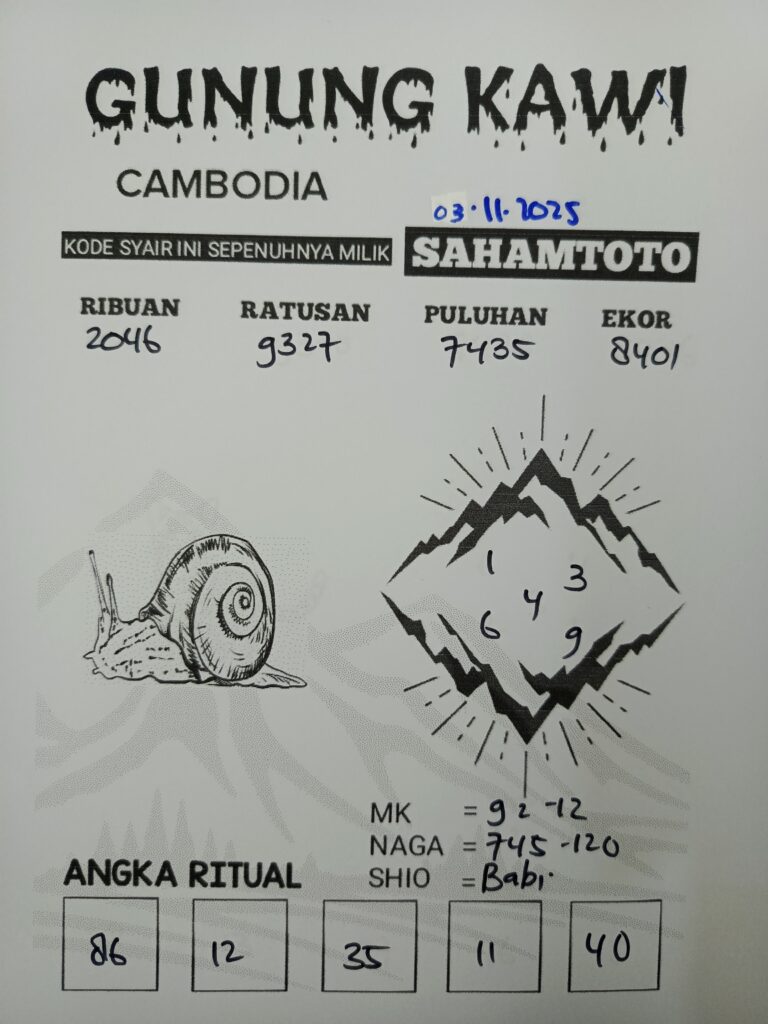 GUNUNG KAWI
CAMBODIA
03.11.2025
KODE SYAIR INI SEPENUHNYA MILIK SAHAMTOTO
RIBUAN RATUSAN PULUHAN EKOR
2046 9327 7435 8401
1 3
4
6 9
MK = 92-12
NAGA = 745-120
SHIO = Babi
ANGKA RITUAL
86 12 35 11 40